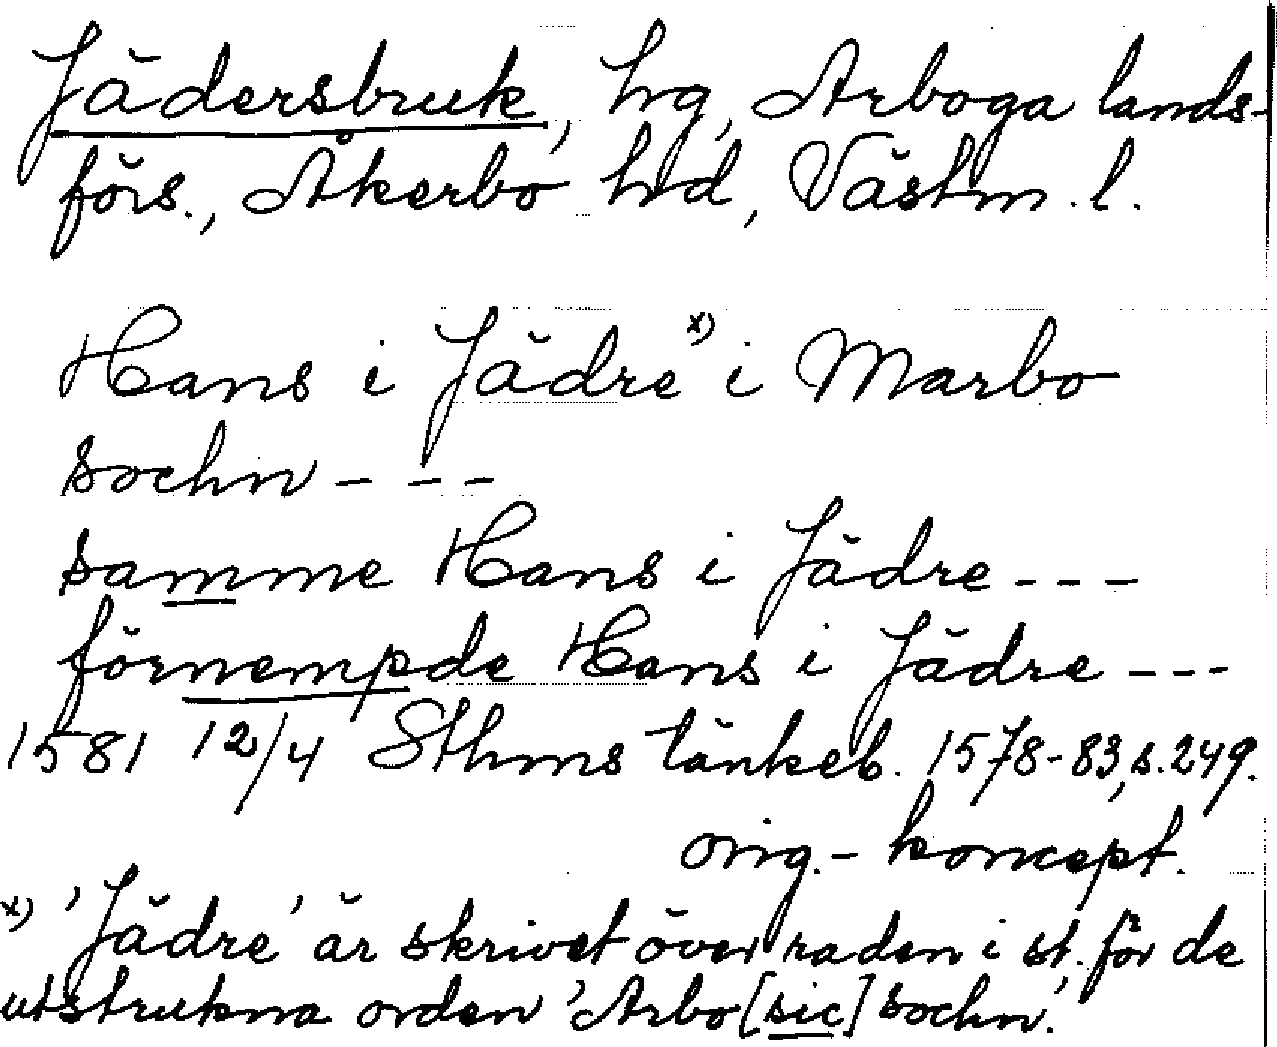 Jädersbruk, hg, Arboga lands-
förs., Åkerbo hd, Västm. l.
Hans i Jädre x) i Marbo
sochn - - -
samme Hans i Jädre - - -
förnempde Hans i Jädre - - -
1581 12/4 Sthms tänkeb. 1578-83, s. 249.
orig.- koncept.
x) 'Jädre' är skrivet över raden i st. för de
utstrukna orden 'Arbo [sic] sochn'.